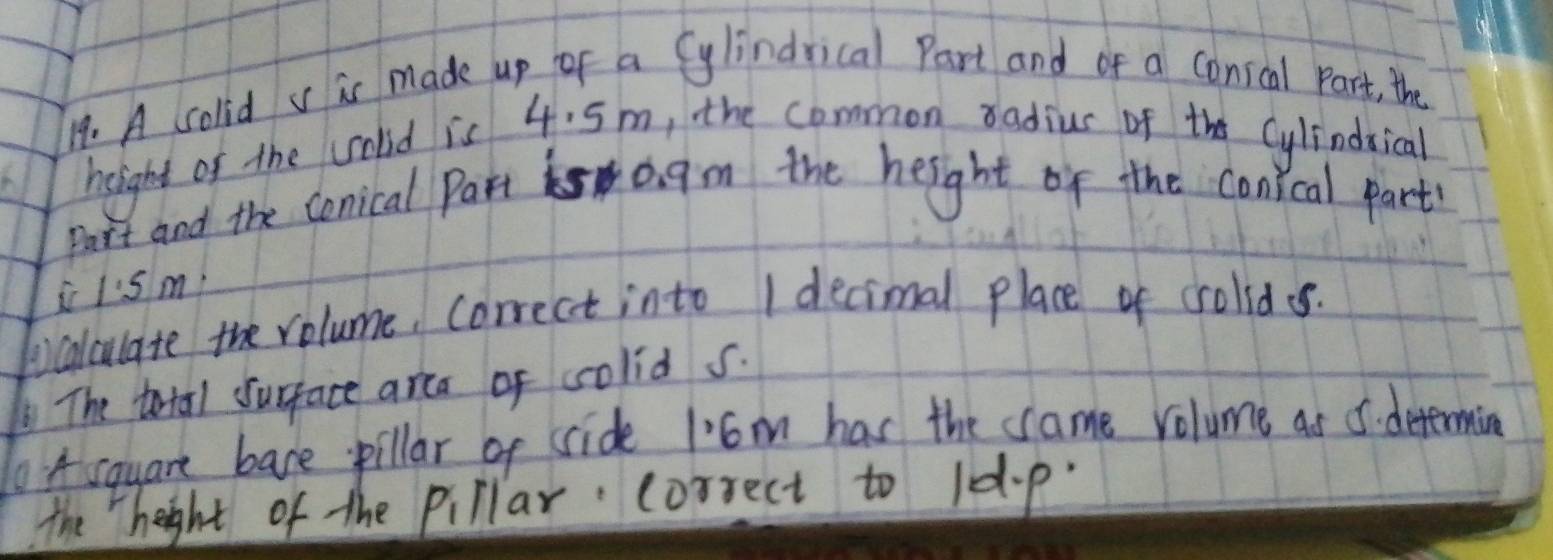 19. A solid s is made up of a Cylindrical Part and of a Conical Part, the
height of the solid is 4.5m, the common radius of the Cylindrical
Part and the conical Part is 0.9m the height of the conical part
is 1.5m.
a) calculate the volume, correct into 1 decimal place of solid s.
b The total surface area of solid s.
c A square base pillar of side 1.6m has the same volume as s. determine
the height of the Pillar. correct to 1d.p.